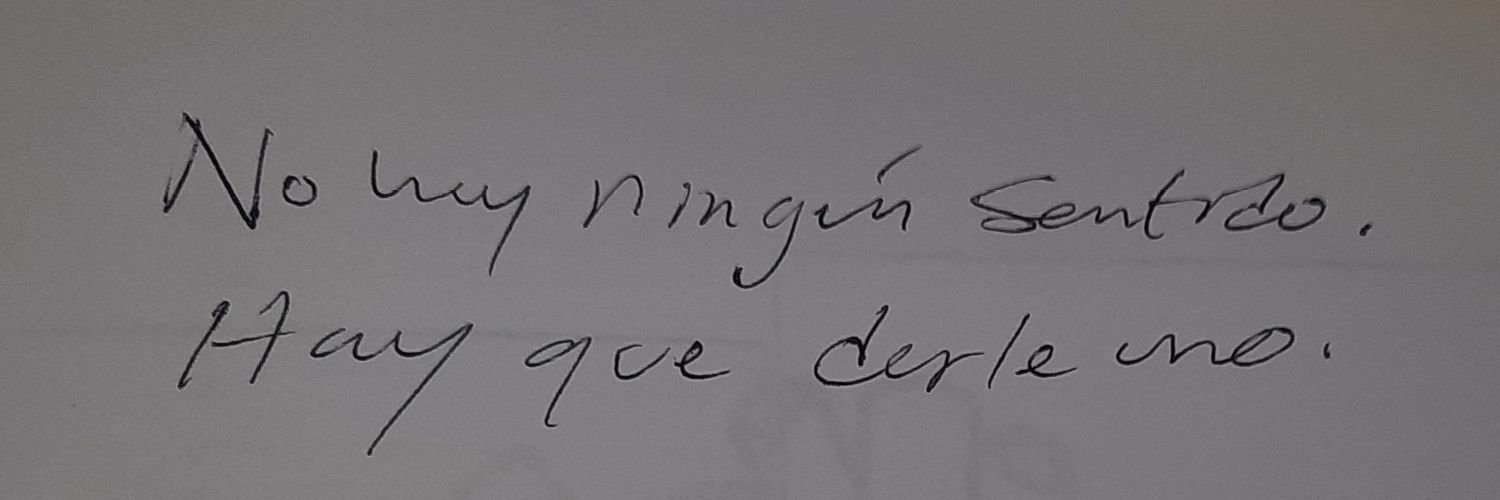 No hay ningún sentido.
Hay que darle uno.